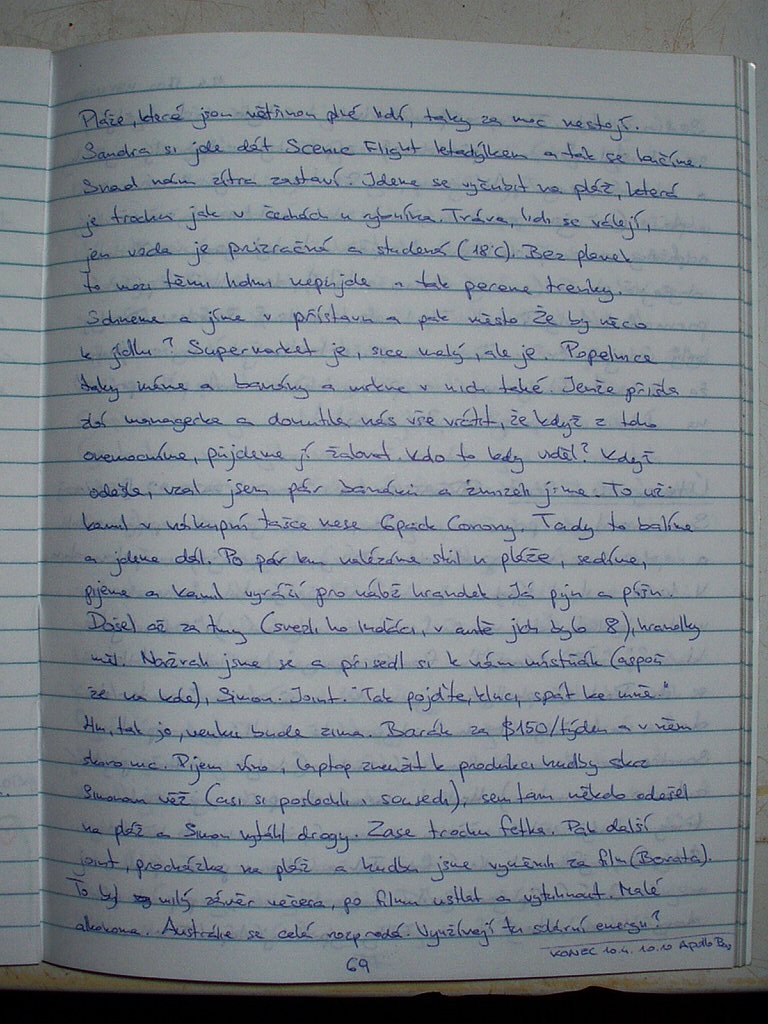 Pláže, které jsou většinou plné lidí, taky za moc nestojí.
Sandra si jde dát Scenic Flight letadýlkem a tak se loučíme.
Snad nám zítra zastaví. Jdeme se vyčubit na pláž, která
je trochu jak v čechách u rybníka. Tráva, lidi se válejí,
jen voda je prizračná a studená (18°C). Bez plavek
to mezi těmi lidmi nepůjde a tak pereme trenky.
Schneme a jíme v přístavu a pak město. Že by něco
k jídlu? Supermarket je, sice malý, ale je. Popelnice
taky máme a banány a mrkve v nich také. Jenže přišla
zlá managerka a donutila nás vše vrátit, že když z toho
onemocníme, půjdeme jí žalovat. Kdo to kdy viděl? Když
odešla, vzal jsem pár banánů a zmizeli jsme. To už
Kamil v nákupní tašce nese 6pack Corony. Tady to balíme
a jdeme dál. Po pár km nalézáme stůl u pláže, sedíme,
pijeme a Kamil vyráží pro nálož hranolek. Já piju a píšu.
Došel až za tmy (svezli ho Indáci, v autě jich bylo 8), hranolky
měl. Nažrali jsme se a přisedl si k nám místňák (aspoň
že na kole), Simon. Joint. "Tak pojďte, kluci, spát ke mně."
Hm, tak jo, venku bude zima. Barák za $150/týden a v něm
skoro nic. Pijem víno, laptop zneužit k produkci hudby skrz
Simonovu věž (asi si poslechli i sousedi), sem tam někdo odešel
na pláž a Simon vytáhl drogy. Zase trochu fetka. Pak další
joint, procházka na pláž a hudbu jsme vyměnili za film (Borata).
To byl milý závěr večera, po filmu ustlat a vytuhnout. Malé
alkokoma. Austrálie se celá rozprodá. Využívají tu solární energii?
KONEC 10.4. 10.10 Apollo Bay
69